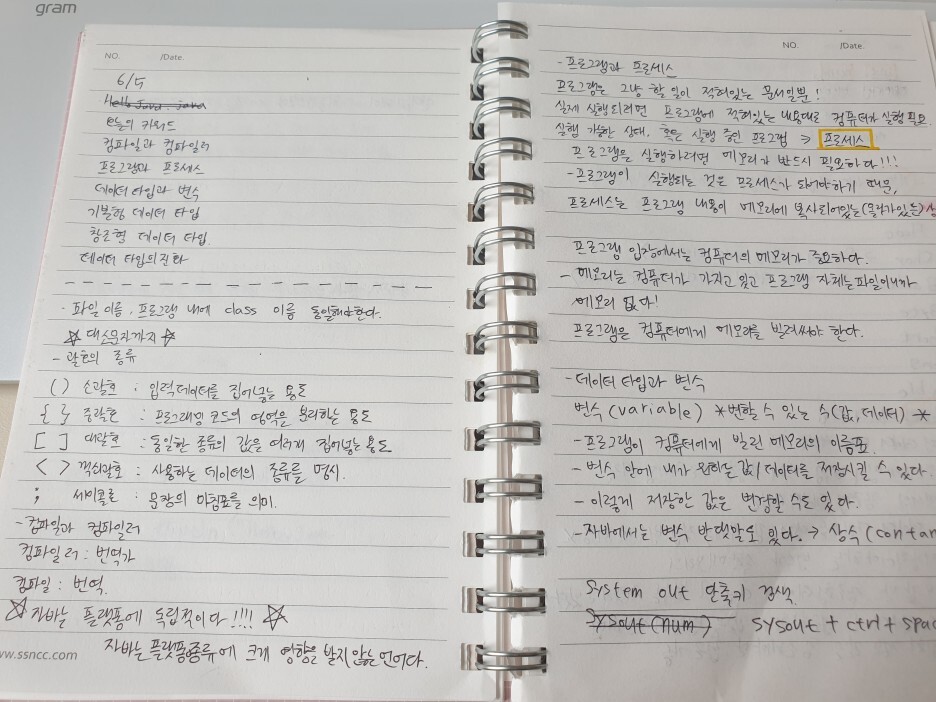 gram
NO. /Date.
6/5
Hello Java. java
오늘의 키워드
컴파일과 컴파일러
프로그램과 프로세스
데이터 타입과 변수
기본형 데이터 타입
참조형 데이터 타입
데이터 타입의 진화
- 파일 이름, 프로그램 내에 class 이름 동일해야한다.
☆ 대소문자까지 ☆
- 괄호의 종류
( ) 소괄호 : 입력데이터를 집어넣는 용도
{ } 중괄호 : 프로그래밍 코드의 영역을 분리하는 용도
[ ] 대괄호 : 동일한 종류의 값을 여러개 집어넣는 용도
< > 꺽쇠괄호 : 사용하는 데이터의 종류를 명시.
; 세미콜론 : 문장의 마침표를 의미.
- 컴파일과 컴파일러
컴파일러 : 번역가
컴파일 : 번역.
☆ 자바는 플랫폼에 독립적이다!!!! ☆
자바는 플랫폼종류에 크게 영향을 받지 않는 언어다.
ww.ssncc.com
NO. /Date.
- 프로그램과 프로세스
프로그램은 그냥 할 일이 적혀있는 문서일뿐!
실제 실행되려면 프로그램에 적혀있는 내용대로 컴퓨터가 실행 필요.
실행 가능한 상태, 혹은 실행 중인 프로그램 → 프로세스
프로그램은 실행하려면 메모리가 반드시 필요하다!!!
- 프로그램이 실행되는 것은 프로세스가 되어야하기 때문,
프로세스는 프로그램 내용이 메모리에 복사되어있는(올라가있는) 상
프로그램 입장에서는 컴퓨터의 메모리가 중요하다.
- 메모리는 컴퓨터가 가지고 있고 프로그램 자체는 파일이니까
메모리 없다!
프로그램은 컴퓨터에게 메모리를 빌려써야 한다.
- 데이터 타입과 변수
변수 (variable) *변할 수 있는 수(값, 데이터) *
- 프로그램이 컴퓨터에게 빌린 메모리의 이름표.
- 변수 안에 내가 원하는 값/데이터를 저장시킬 수 있다.
- 이렇게 저장한 값은 변경할 수도 있다.
- 자바에서는 변수 반댓말도 있다. → 상수 (contan
System out 단축키 검색
Sysout (num) sysout + ctrl + spac